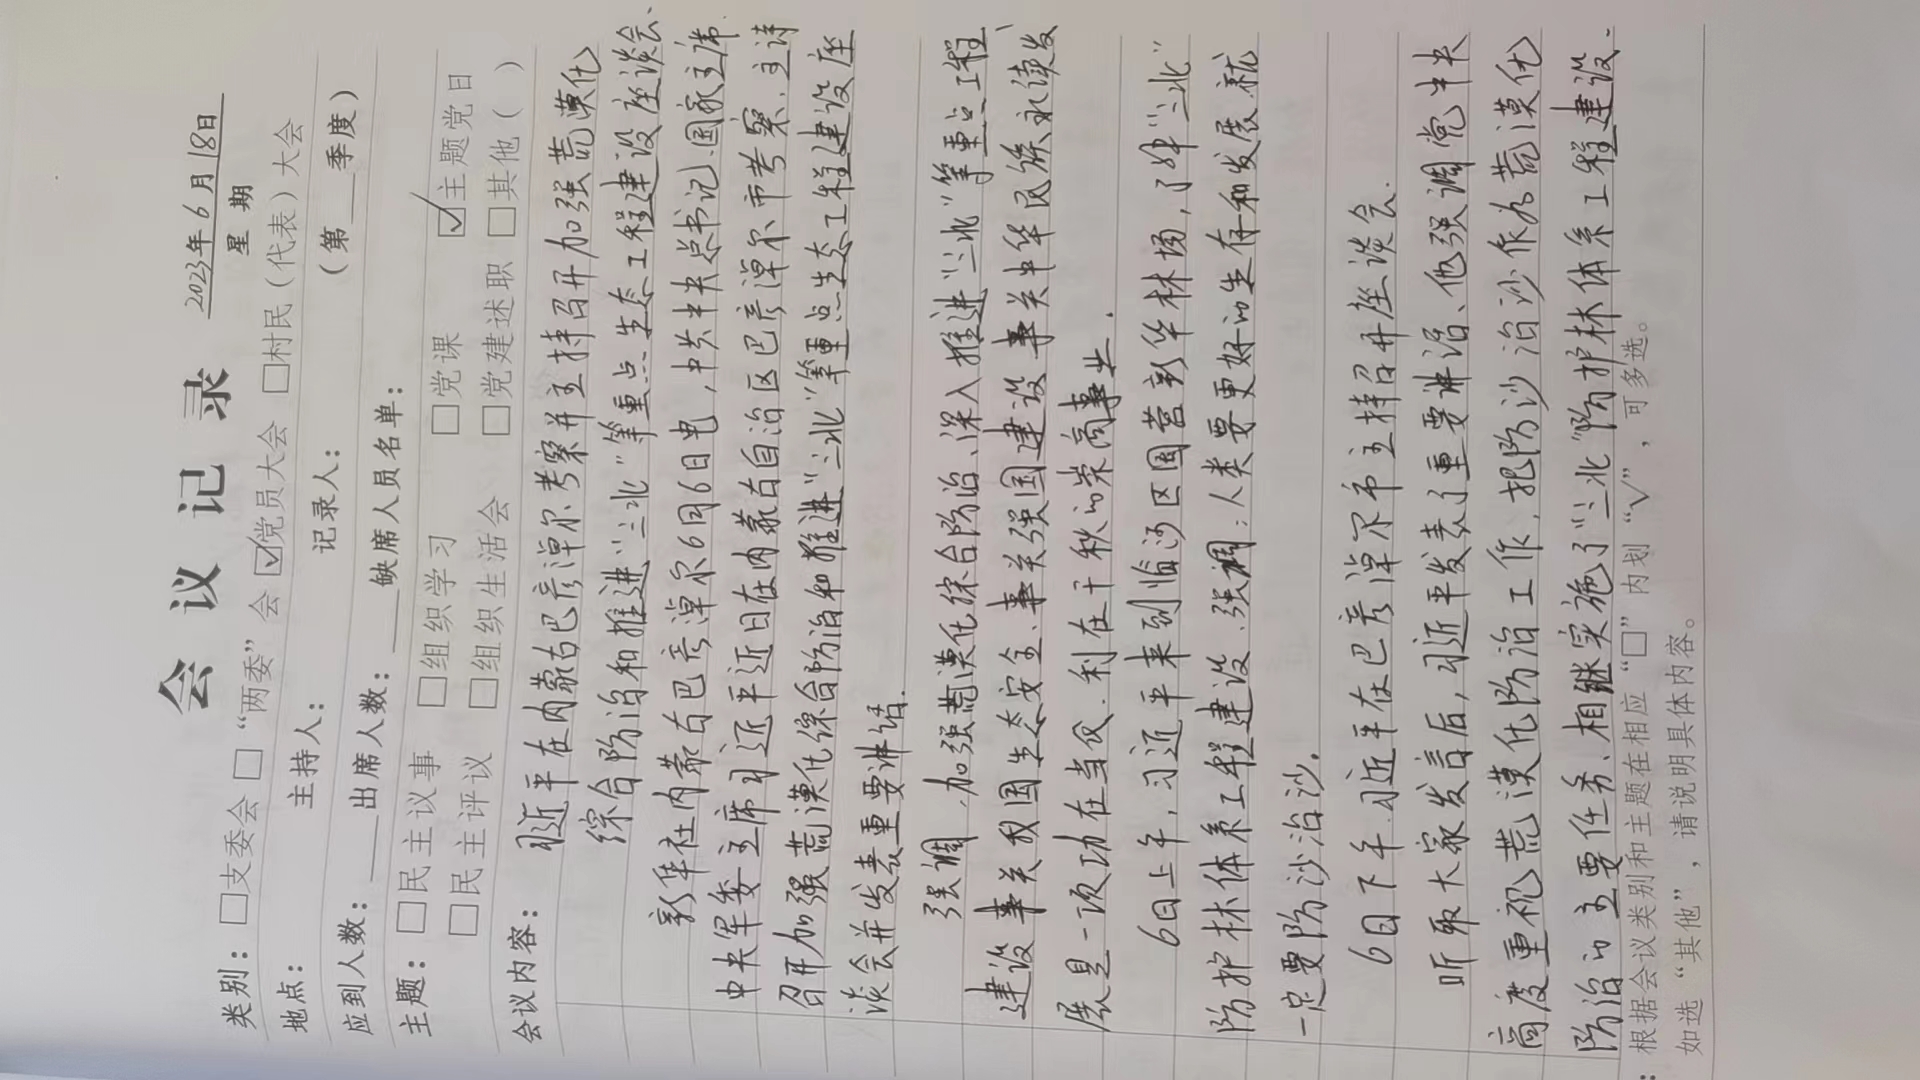 会议记录
2023年6月18日
星期
类别：□支委会 □“两委”会 ☑党员大会 □村民（代表）大会
地点： 主持人： 记录人： （第 季度）
应到人数： 出席人数： 缺席人员名单：
主题：□民主议事 □组织学习 □党课 ☑主题党日
□民主评议 □组织生活会 □党建述职 □其他（ ）
会议内容： 习近平在内蒙古巴彦淖尔考察并主持召开加强荒漠化
综合防治和推进“三北”等重点生态工程建设座谈会、
新华社内蒙古巴彦淖尔6月6日电，中共中央总书记、国家主席
中央军委主席习近平近日在内蒙古自治区巴彦淖尔市考察、主持
召开加强荒漠化综合防治和推进“三北”等重点生态工程建设座
谈会并发表重要讲话.
强调，加强荒漠化综合防治、深入推进“三北”等重点工程
建设事关我国生态安全、事关强国建设事关中华民族永续发
展是一项功在当代、利在千秋的崇高事业.
6日上午，习近平来到临河区国营新华林场，了解“三北”
防护林体系工程建设、强调：人类要更好的生存和发展就
一定要防沙治沙.
6日下午、习近平在巴彦淖尔市主持召开座谈会.
听取大家发言后，习近平发表了重要讲话、他强调党中央
高度重视荒漠化防治工作，把防沙治沙作为荒漠化
防治的主要任务、相继实施了“三北”防护林体系工程建设.
：根据会议类别和主题在相应“□”内划“√”，可多选。
如选“其他”，请说明具体内容。